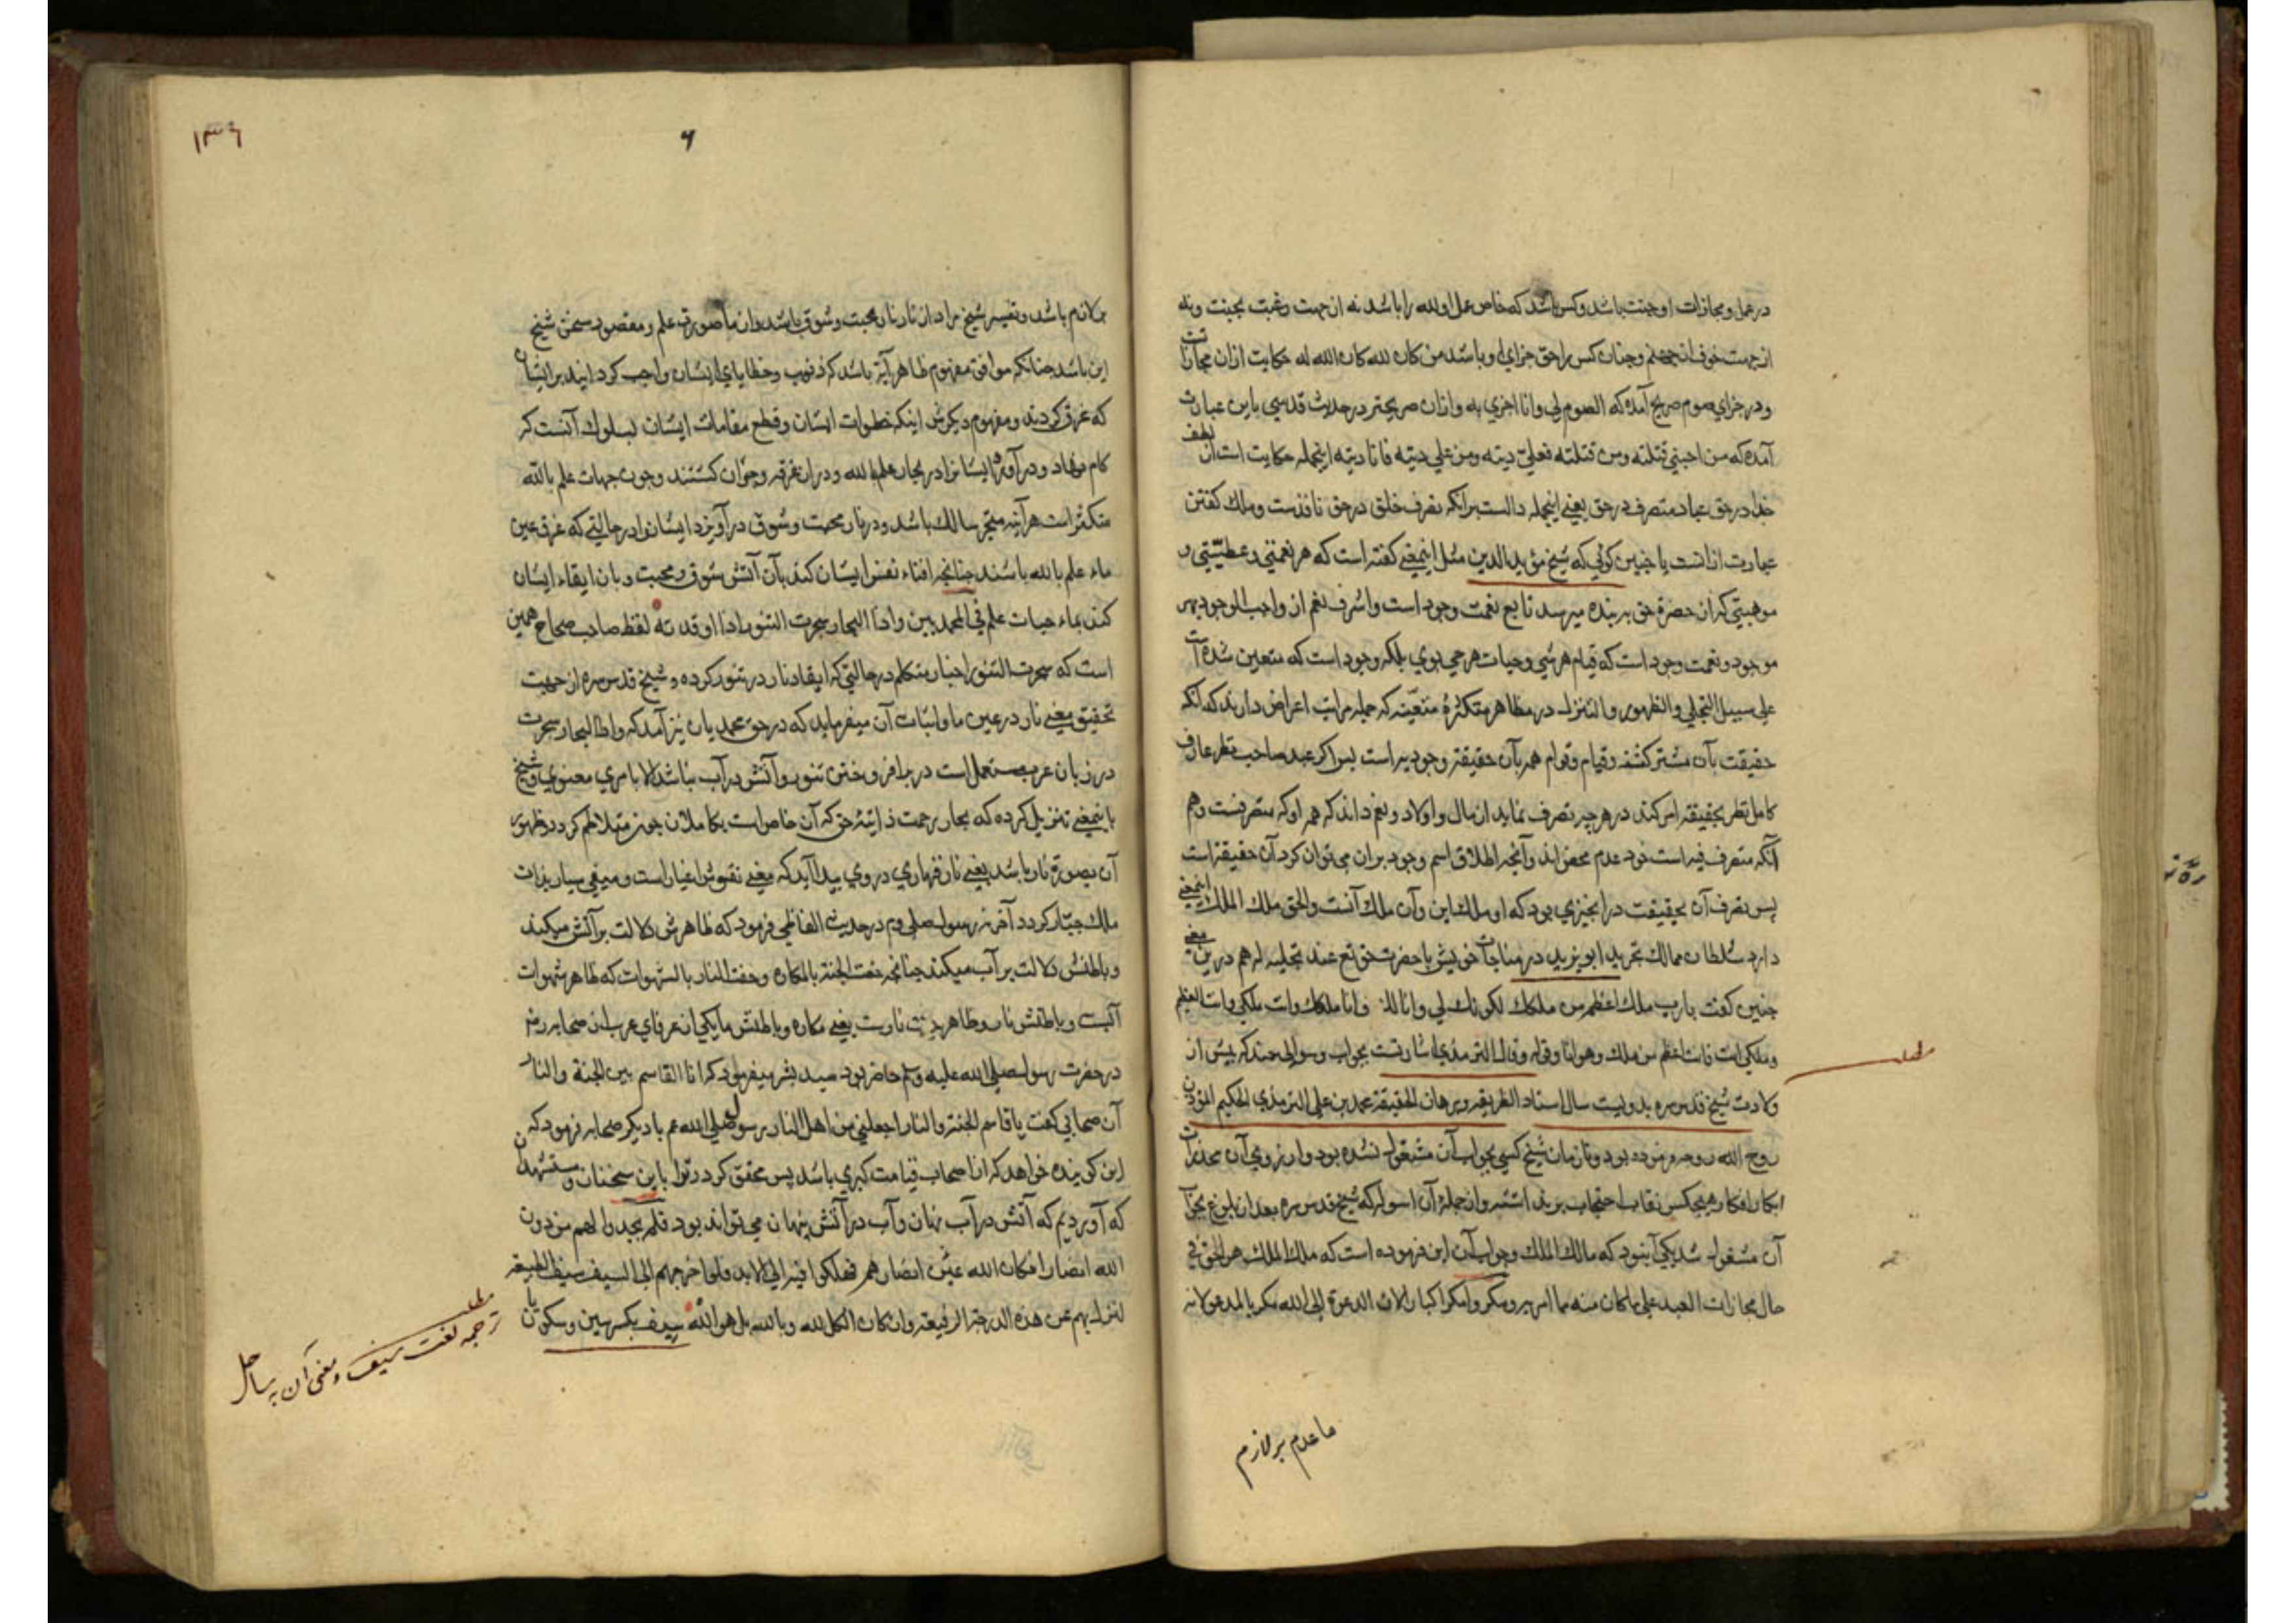 در عمل ومجازات او جنت باشد وکس باشد که خاص عمل او لله را باشد نه از جهت رغبت بجنت ونه
از جهت خوف از جهنم وچنان کس را حق جزای او باشد من کان لله کان الله له حکایت ازان مجازات
ودر جزای صوم صریح آمده که الصوم لی وانا اجزی به وازان صریحتر در حدیث قدسی باین عبارت
آمده که من احبنی قتلته ومن قتلته فعلیّ دیته ومن علی دیته فانا دیته اینجمله حکایت است از لطف
خدا در حق عباد متصرف در حق یعنی اینجمله دالست برانکه تصرف خلق در حق نافذست وملک کفتن
عبارت ازانست یا چنین کوئی که شیخ مؤید الدین مثل اینمعنی کفته است که هر نعمتی وعطیّتی و
موهبتی که از حضرة حق ببنده میرسد تابع نعمت وجود است واشرف نعم از واجب الوجود بهر
موجود ونعمت وجود است که قیام هر شی وحیات هر حی بوی بلکه وجود است که متعین شده است
علی سبیل التجلی والظهور والتنزل در مظاهر متکثرهٔ متعیّنه که جمله مراتب اعراض دارند که آنکه
حقیقت بآن مشترکشنه وقیام وقوام همه بآن حقیقة وجودیه است پس اکر عبد صاحب نظر عارف
کامل نظر بحقیقة امر کند در هرچه تصرف نماید از مال واولاد ونعم داند که هم او که متصرفست وهم
آنکه متصرف فیه است خود عدم محض اند وآنچه اطلاق اسم وجود بران می توان کرد آن حقیقة است
پس تصرف آن بحقیقت در آنچیزی بود که او ملک این وآن ملک آنست والحق ملک الملک اینمعنی
دارد سلطان ممالک تجرید ابو یزید در مناجات خویش با حضرت حق تع عند تجلیه له هم درین معنی
چنین کفت یا رب ملک اعظم من ملکک لکونک لی وانا لک فانا ملکک وانت ملکی وانت العظیم
وملکی انت فانت اعظم من ملک وهو انا وقوله وقال الترمذی اشارتست بجواب وسوالی چند که پیش از
مطلب
ولادت شیخ قدس سره بدویست سال استاد الطریقه وبرهان الحقیقة محمد بن علی الترمذی الحکیم المؤذن
روح الله روحه فرموده بود وتا زمان شیخ کسی بجواب آن مشغول نشده بود واز روی آن مخدرات
ابکار افکار هیچکس نقاب احتجاب بر نداشته واز جملهٔ آن اسوله که شیخ قدس سره بعد از بلوغ بجواب
آن مشغول شد یکی آنبود که مالک الملک وجواب آن این فرموده است که ملک الملک هو الحق فی
حال مجازات العبد علی ما کان منه مما امر به ومکروا مکرا کبارا لان الدعوة الی الله مکر بالمدعو لانه
ما عدم بر لازم
١٣٦
۶
بر لازم باشد وتفسیر شیخ مراد از نار نار محبت وشوق باشد وازن ما صورت علم ومقصود سخن شیخ
این باشد چنانکه موافق مفهوم ظاهر آیة باشد که ذنوب وخطایای ایشان واجب کردانید بر ایشان
که غرق کردند ومفهوم دیکرش اینکه خطوات ایشان وقطع مقامات ایشان بسلوک آنست که
کام نهاد ودر آورد ایشانرا در بحار علم بالله ودران غرقه وحیران کشتند وچون جهات علم بالله
متکثر است هرآینه متحیر سالک باشد ودر نار محبت وشوق در آویزد ایشانرا در حالتی که غرق عین
ماء علم بالله باشند چنانچه افناء نفس ایشان کند بآن آتش شوق ومحبت وبان ابقاء ایشان
کند بماء حیات علم فی المحمدیین واذا البحار سجرت سجرت التنور اذا اوقدته لفظ صاحب صحاح همین
است که سجرت التنور اخبار متکلم در حالتی که ایقاد نار در تنور کرده وشیخ قدس سره از جهت
تحقیق معنی نار در عین ما واثبات آن میفرماید که در حق محمدیان نیز آمد که واذا البحار سجرت
در زبان عرب مستعمل است در بر افروختن تنور وآتش در آب نباشد الا بامری معنوی وشیخ
باینمعنی تنزیل کرده که بحار رحمت ذاتیهٔ حق که آن خاص است بکاملان چون متلاطم کردد ظهور
آن بصورة نار باشد یعنی نار قهاری در وی پیدا آید که مغنی نقوش اغیار است ومبقی سیار بذات
ملک جبّار کردد آخر نه رسول صلی وم در حدیث الفاظی فرمود که ظاهرش دلالت بر آتش میکند
وباطنش دلالت بر آب میکند چنانچه حفت الجنة بالمکاره وحفت النار بالشهوات که ظاهر شهوات
آبست وباطنش نار وظاهر نارست یعنی مکاره وباطنش ما یکی از عرفای عرب از صحابه رض
در حضرت رسول صلی الله علیه وسلم حاضر بود سید بشر میفرمود که انا القاسم بین الجنة والنار
آن صحابی کفت یا قاسم الجنة والنار اجعلنی من اهل النار رسول صلی الله عم با دیکر صحابه فرمود که
این کوینده خواهد که از اصحاب قیامت کبری باشد پس محقق کردد ترا باین سخنان ومستشهدات
که آوردیم که آتش در آب نهان وآب در آتش پنهان می تواند بود فلم یجدوا لهم من دون
الله انصارا فکان الله عین انصارهم فهلکوا فیه الی الابد فلو اخرجهم الی السیف سیف الطبیعة
لنزل بهم عن هذه الدرجة الرفیعة وان کان الکل لله وبالله بل هو الله سیف بکسر سین وسکون یا
مطلب
ترجمه لغت سیف ومعنی آن به ساحل